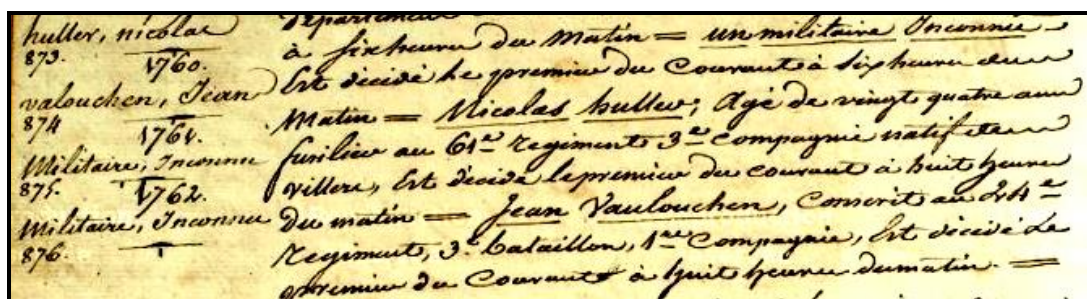 huller, nicolas
873.
1760.
valouchen, Jean
874
1761.
Militaire, Inconnu
875.
1762.
Militaire, Inconnu
876.
département
à six heures du Matin = un militaire Inconnu
Est décédé le premier du Courant à six heures du
Matin = Nicolas huller; Agé de vingt quatre ans
fusilier au 61e Regiment 3e Compagnie natif de
villers, Est décédé le premier du courant à huit heures
du matin = Jean Vaulouchen, Conscrit au 24e
Regiment, 3e bataillon, 1ere Compagnie, Est décédé Le
premier du Courant à huit heures du matin. =